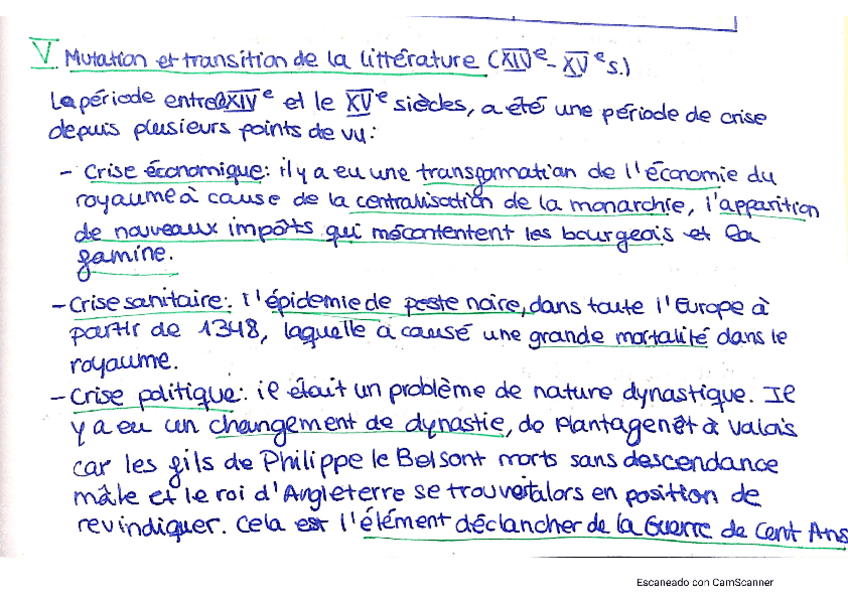 V. Mutation et transition de la littérature (XIVe - XVe s.)
La période entre le XIVe et le XVe siècles, a été une période de crise
depuis plusieurs points de vu:
- Crise économique: il y a eu une transformation de l'économie du
royaume à cause de la centralisation de la monarchie, l'apparition
de nouveaux impôts qui mécontentent les bourgeois et la
famine.
- Crise sanitaire: l'épidemie de peste noire, dans toute l'Europe à
partir de 1348, laquelle a causé une grande mortalité dans le
royaume.
- Crise politique: il était un problème de nature dynastique. Il
y a eu un changement de dynastie, de Plantagenêt à Valois
car les fils de Philippe le Bel sont morts sans descendance
mâle et le roi d'Angleterre se trouve alors en position de
revindiquer. Cela est l'élément déclancher de la Guerre de Cent Ans
Escaneado con CamScanner